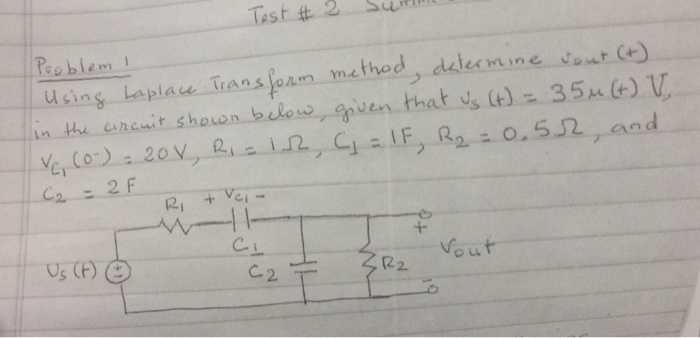 Test # 2
Problem 1
Using Laplace Transform method, determine vout (t)
in the circuit shown below, given that vs (t) = 35u(t) V,
Vc1 (0-) = 20V, R1 = 1Ω, C1 = 1F, R2 = 0.5Ω, and
C2 = 2F
R1 + Vc1 -
C1
C2
R2
+
Vout
-
Us (t)
+
-